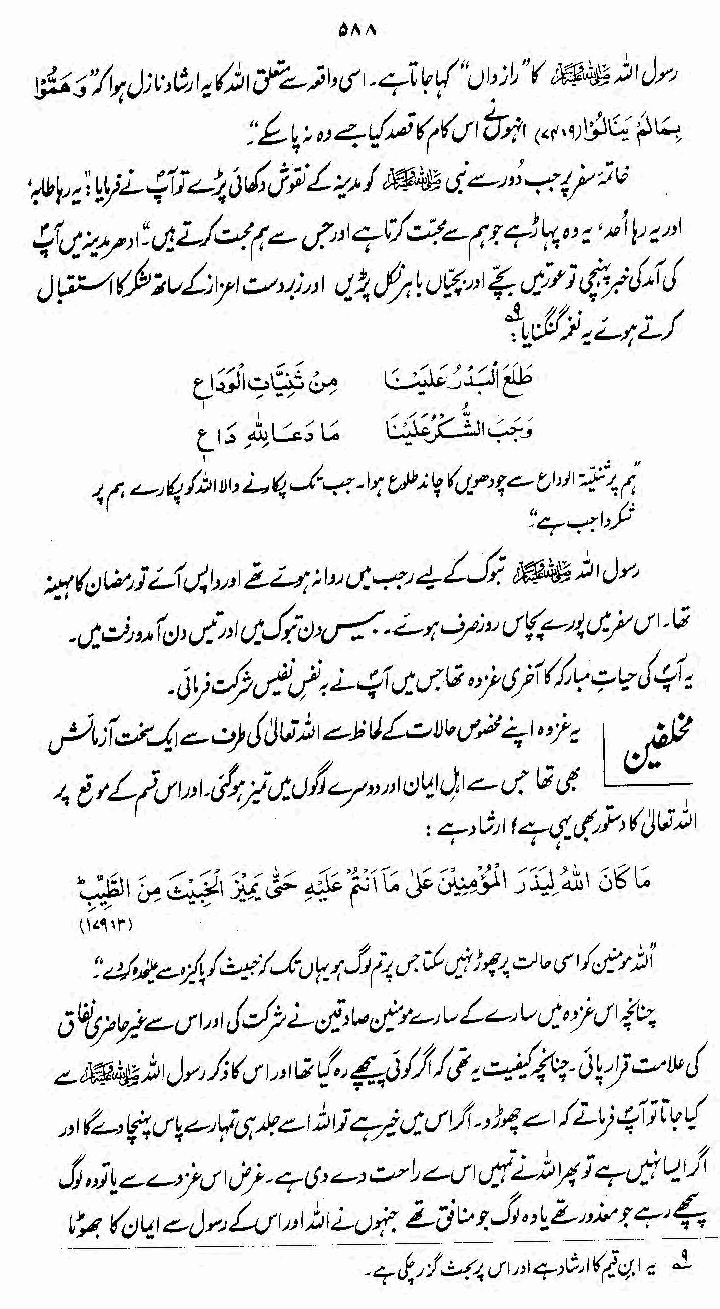 ۵۸۸
رسول اللہ ﷺ کا ”رازداں“ کہا جاتا ہے۔ اسی واقعہ سے متعلق اللہ کا یہ ارشاد نازل ہوا کہ ”وَهَمُّوْا
بِمَا لَمْ يَنَالُوْا (۷۴:۹) انہوں نے اس کام کا قصد کیا جسے وہ نہ پا سکے“۔
خاتمۂ سفر پر جب دُور سے نبی ﷺ کو مدینہ کے نقوش دکھائی پڑے تو آپؐ نے فرمایا: ”یہ رہا طابہ‘
اور یہ رہا اُحد‘ یہ وہ پہاڑ ہے جو ہم سے محبّت کرتا ہے اور جس سے ہم محبت کرتے ہیں۔“ ادھر مدینہ میں آپؐ
کی آمد کی خبر پہنچی تو عورتیں بچّے اور بچیّاں باہر نکل پڑیں اور زبردست اعزاز کے ساتھ لشکر کا استقبال
کرتے ہوئے یہ نغمہ گنگنایا۹؂:
طَلَعَ الْبَدْرُ عَلَيْنَا مِنْ ثَنِيَّاتِ الْوَدَاعِ
وَجَبَ الشُّكْرُ عَلَيْنَا مَا دَعَا لِلّٰهِ دَاعِ
”ہم پر ثنیّۃ الوداع سے چودھویں کا چاند طلوع ہوا۔ جب تک پکارنے والا اللہ کو پکارے ہم پر
شکر واجب ہے“۔
رسول اللہ ﷺ تبوک کے لیے رجب میں روانہ ہوئے تھے اور واپس آئے تو رمضان کا مہینہ
تھا۔ اس سفر میں پورے پچاس روز صرف ہوئے۔ بیس دن تبوک میں اور تیس دن آمد و رفت میں۔
یہ آپؐ کی حیاتِ مبارکہ کا آخری غزوہ تھا جس میں آپؐ نے بہ نفسِ نفیس شرکت فرمائی۔
مخلفین
یہ غزوہ اپنے مخصوص حالات کے لحاظ سے اللہ تعالیٰ کی طرف سے ایک سخت آزمائش
بھی تھا جس سے اہلِ ایمان اور دوسرے لوگوں میں تمیز ہوگئی۔ اور اس قسم کے موقع پر
اللہ تعالیٰ کا دستور بھی یہی ہے؛ ارشاد ہے:
مَا كَانَ اللّٰهُ لِيَذَرَ الْمُؤْمِنِيْنَ عَلٰى مَآ اَنْتُمْ عَلَيْهِ حَتّٰى يَمِيْزَ الْخَبِيْثَ مِنَ الطَّيِّبِ ؕ
(۱۷۹:۳)
”اللہ مومنین کو اسی حالت پر چھوڑ نہیں سکتا جس پر تم لوگ ہو یہاں تک کہ خبیث کو پاکیزہ سے علیٰحدہ کردے“۔
چنانچہ اس غزوہ میں سارے کے سارے مومنین صادقین نے شرکت کی اور اس سے غیر حاضری نفاق
کی علامت قرار پائی۔ چنانچہ کیفیت یہ تھی کہ اگر کوئی پیچھے رہ گیا تھا اور اس کا ذکر رسول اللہ ﷺ سے
کیا جاتا تو آپؐ فرماتے کہ اسے چھوڑ دو۔ اگر اس میں خیر ہے تو اللہ اسے جلد ہی تمہارے پاس پہنچا دے گا اور
اگر ایسا نہیں ہے تو پھر اللہ نے تمہیں اس سے راحت دے دی ہے۔ غرض اس غزوے سے یا تو وہ لوگ
پیچھے رہے جو معذور تھے یا وہ لوگ جو منافق تھے جنہوں نے اللہ اور اس کے رسول سے ایمان کا جھوٹا
۹؂ یہ ابنِ قیم کا ارشاد ہے اور اس پر بحث گزر چکی ہے۔